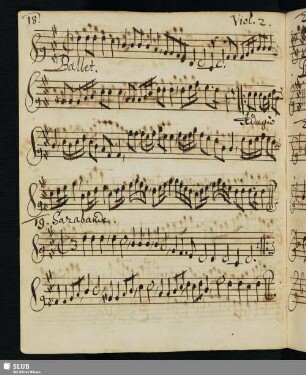 18. Viol. 2.
Ballet.
Adagio
19. Sarabande.
SLUB